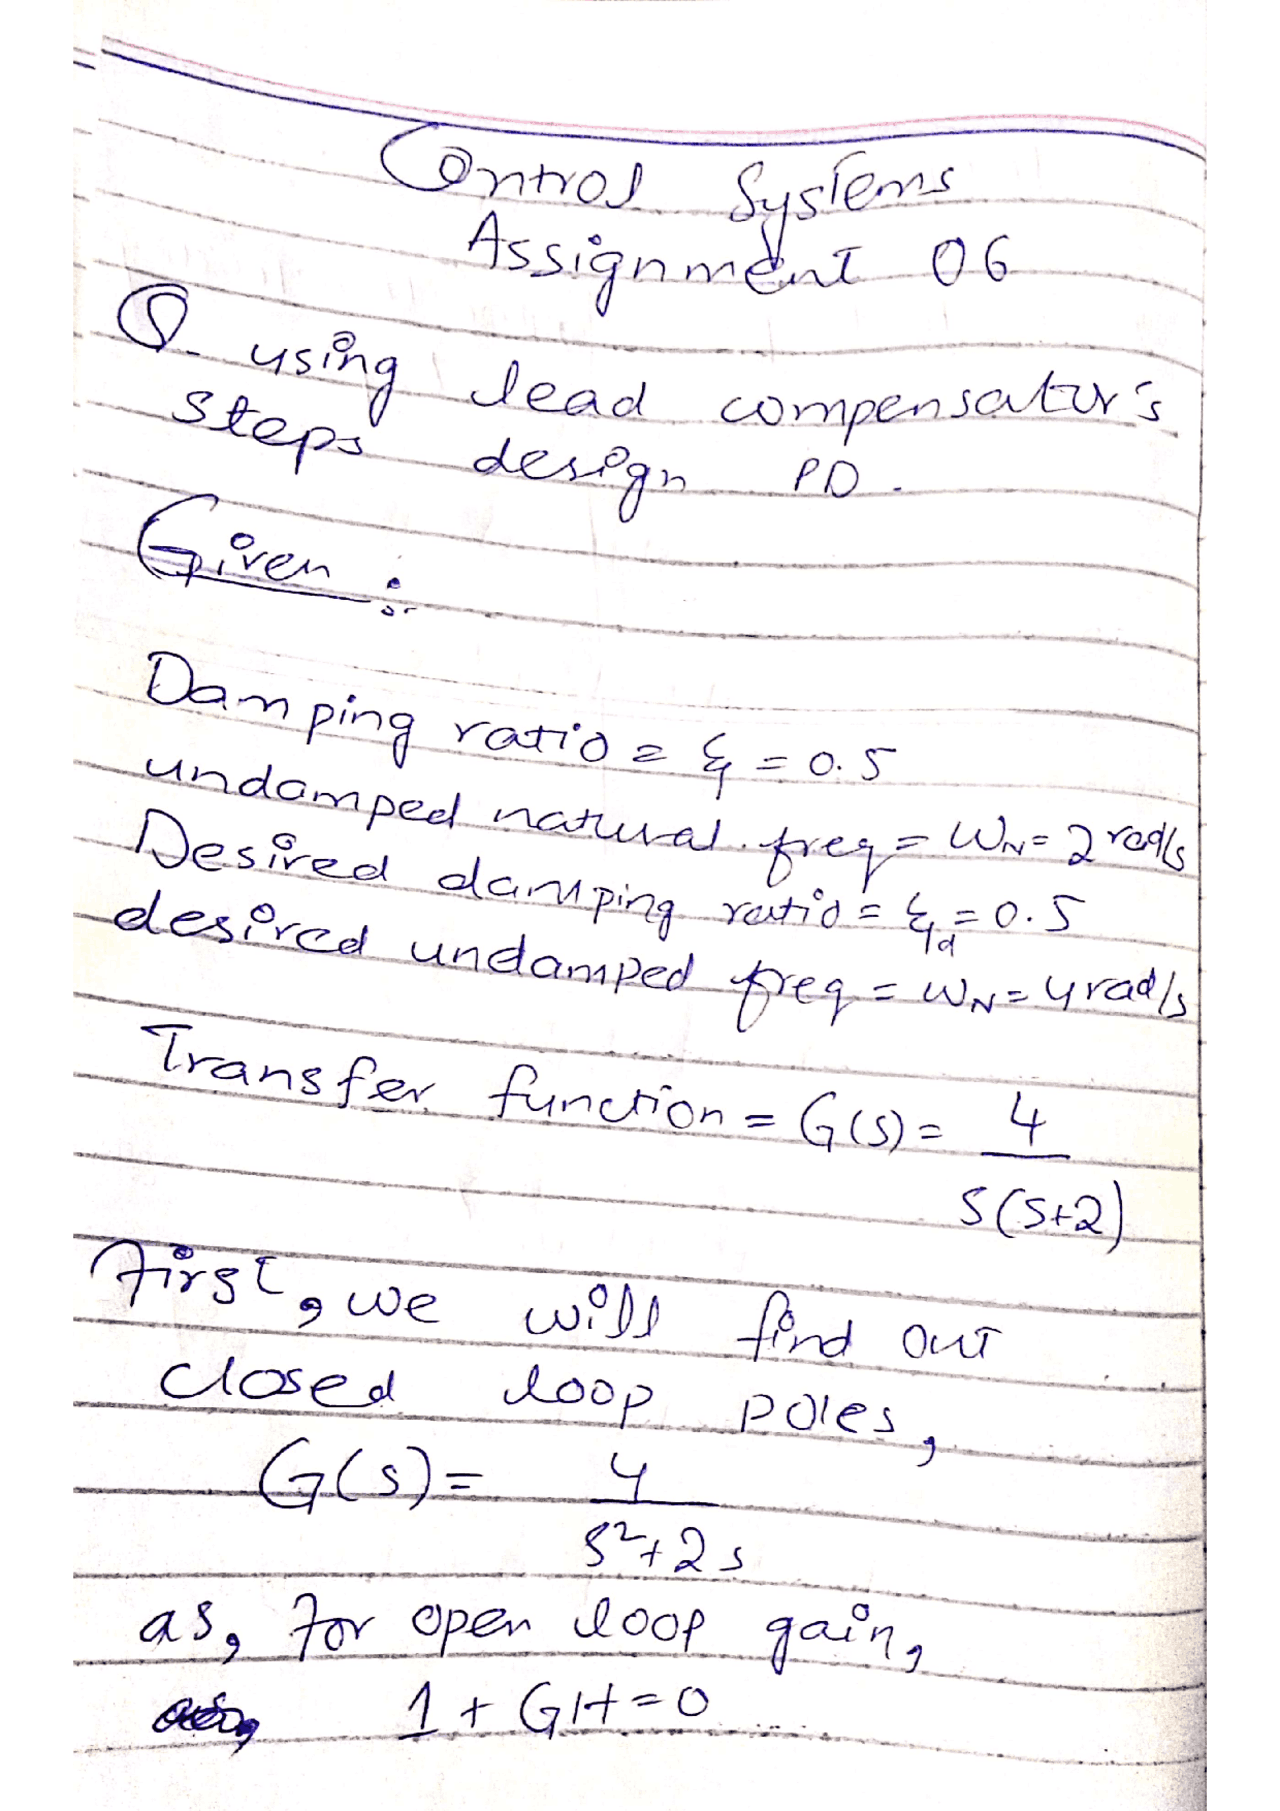 Control Systems
Assignment 06
Q. using lead compensator's
steps design PD.
Given :
Damping ratio = ξ = 0.5
undamped natural freq = WN = 2 rad/s
Desired damping ratio = ξd = 0.5
desired undamped freq = WN = 4 rad/s
Transfer function = G(S) = 4
S(S+2)
First, we will find out
closed loop poles,
G(s) = 4
s²+2s
as, for open loop gain,
1 + GH = 0